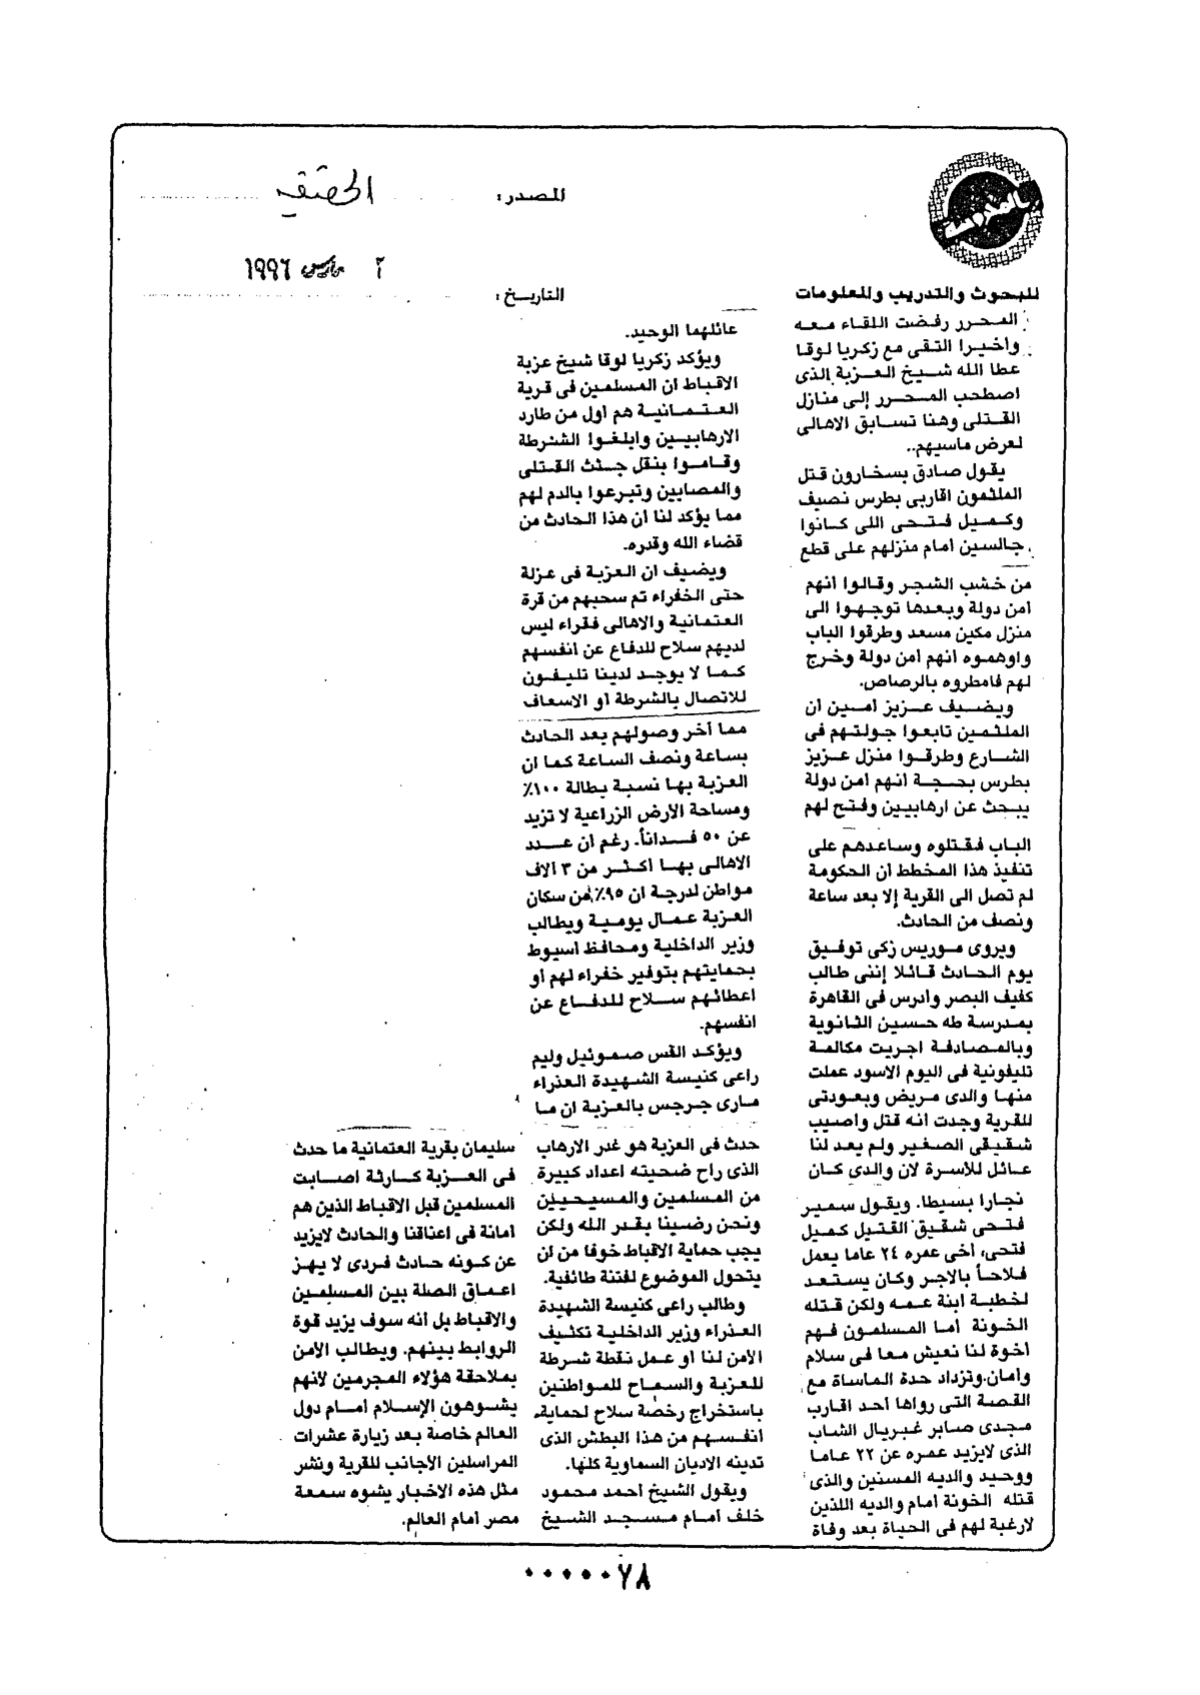 المصدر: الحقيقه
٢ مارس ١٩٩٦
التاريخ:
للبحوث والتدريب والمعلومات
المحرر رفضت اللقاء معه
واخيرا التقى مع زكريا لوقا
عطا الله شيخ العزبة الذى
اصطحب المحرر إلى منازل
القتلى وهنا تسابق الاهالى
لعرض ماسيهم..
يقول صادق بسخارون قتل
الملثمون اقاربى بطرس نصيف
وكميل فتحى اللى كانوا
جالسين امام منزلهم على قطع
من خشب الشجر وقالوا انهم
امن دولة وبعدها توجهوا الى
منزل مكين مسعد وطرقوا الباب
واوهموه انهم امن دولة وخرج
لهم فامطروه بالرصاص.
ويضيف عزيز امين ان
الملثمين تابعوا جولتهم فى
الشارع وطرقوا منزل عزيز
بطرس بحجة انهم امن دولة
يبحث عن ارهابيين وفتح لهم
الباب فقتلوه وساعدهم على
تنفيذ هذا المخطط ان الحكومة
لم تصل الى القرية إلا بعد ساعة
ونصف من الحادث.
ويروى موريس زكى توفيق
يوم الحادث قائلا إننى طالب
كفيف البصر وادرس فى القاهرة
بمدرسة طه حسين الثانوية
وبالمصادفة اجريت مكالمة
تليفونية فى اليوم الاسود عملت
منها والدى مريض وبعودتى
للقرية وجدت انه قتل واصيب
شقيقى الصغير ولم يعد لنا
عائل للأسرة لان والدى كان
نجارا بسيطا. ويقول سمير
فتحى شقيق القتيل كميل
فتحى، اخى عمره ٢٤ عاما يعمل
فلاحاً بالاجر وكان يستعد
لخطبة ابنة عمه ولكن قتله
الخونة أما المسلمون فهم
اخوة لنا نعيش معا فى سلام
وامان.وتزداد حدة الماساة مع
القصة التى رواها احد اقارب
مجدى صابر غبريال الشاب
الذى لايزيد عمره عن ٢٢ عاما
ووحيد والديه المسنين والذى
قتله الخونة امام والديه اللذين
لارغبة لهم فى الحياة بعد وفاة
عائلهما الوحيد.
ويؤكد زكريا لوقا شيخ عزبة
الاقباط ان المسلمين فى قرية
العتمانية هم اول من طارد
الارهابيين وابلغوا الشرطة
وقاموا بنقل جثث القتلى
والمصابين وتبرعوا بالدم لهم
مما يؤكد لنا ان هذا الحادث من
قضاء الله وقدره.
ويضيف ان العزبة فى عزلة
حتى الخفراء تم سحبهم من قرة
العتمانية والاهالى فقراء ليس
لديهم سلاح للدفاع عن انفسهم
كما لا يوجد لدينا تليفون
للاتصال بالشرطة او الاسعاف
مما أخر وصولهم بعد الحادث
بساعة ونصف الساعة كما ان
العزبة بها نسبة بطالة ١٠٠٪
ومساحة الارض الزراعية لا تزيد
عن ٥٠ فداناً. رغم ان عدد
الاهالى بها اكثر من ٣ الاف
مواطن لدرجة ان ٩٥٪ من سكان
العزبة عمال يومية ويطالب
وزير الداخلية ومحافظ اسيوط
بحمايتهم بتوفير خفراء لهم او
اعطائهم سلاح للدفاع عن
انفسهم.
ويؤكد القس صموئيل وليم
راعى كنيسة الشهيدة العذراء
مارى جرجس بالعزبة ان ما
حدث فى العزبة هو غدر الارهاب
الذى راح ضحيته اعداد كبيرة
من المسلمين والمسيحيين
ونحن رضينا بقدر الله ولكن
يجب حماية الاقباط خوفا من ان
يتحول الموضوع لفتنة طائفية.
وطالب راعى كنيسة الشهيدة
العذراء وزير الداخلية تكثيف
الامن لنا او عمل نقطة شرطة
للعزبة والسماح للمواطنين
باستخراج رخصة سلاح لحماية
انفسهم من هذا البطش الذى
تدينه الاديان السماوية كلها.
ويقول الشيخ أحمد محمود
خلف امام مسجد الشيخ
سليمان بقرية العتمانية ما حدث
فى العزبة كارثة اصابت
المسلمين قبل الاقباط الذين هم
أمانة فى اعناقنا والحادث لايزيد
عن كونه حادث فردى لا يهز
اعماق الصلة بين المسلمين
والاقباط بل انه سوف يزيد قوة
الروابط بينهم. ويطالب الامن
بملاحقة هؤلاء المجرمين لأنهم
يشوهون الإسلام امام دول
العالم خاصة بعد زيارة عشرات
المراسلين الأجانب للقرية ونشر
مثل هذه الاخبار يشوه سمعة
مصر امام العالم.
٠٠٠٠٠٧٨